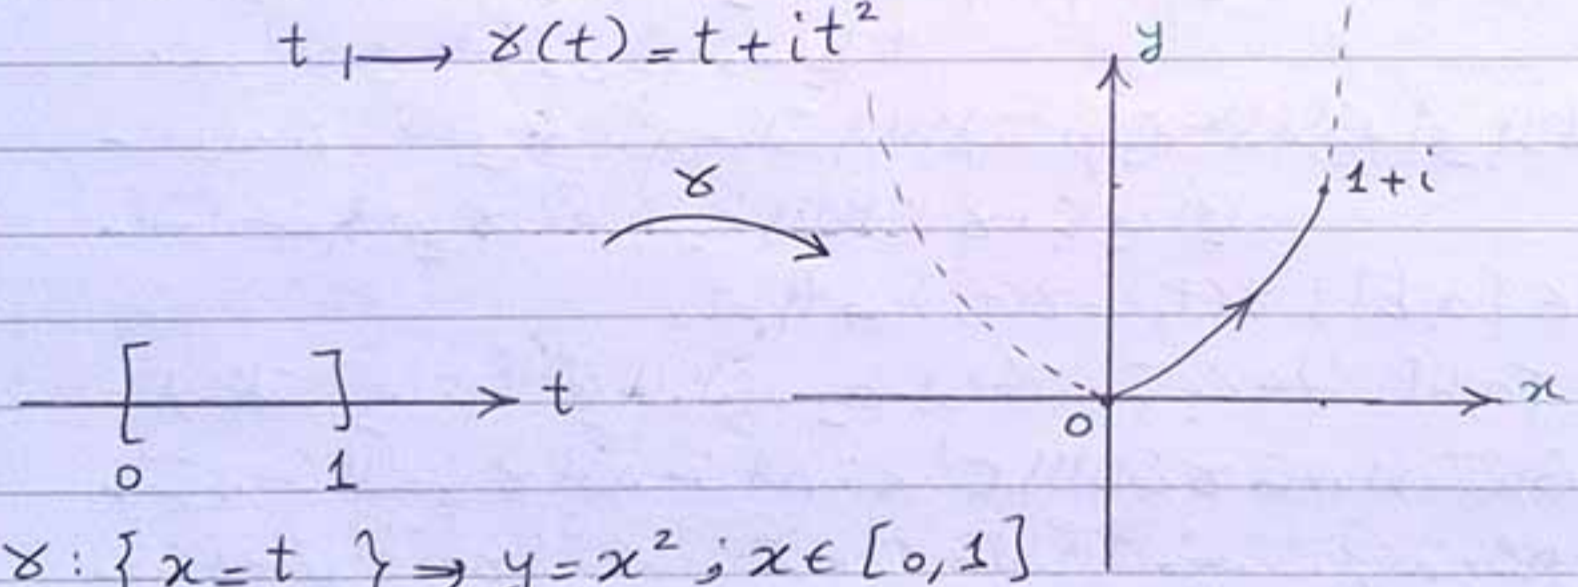 t ↦ γ(t) = t + it²
y
γ
1+i
t
x
0
0 1
γ: { x = t } ⇒ y = x² ; x ∈ [0, 1]